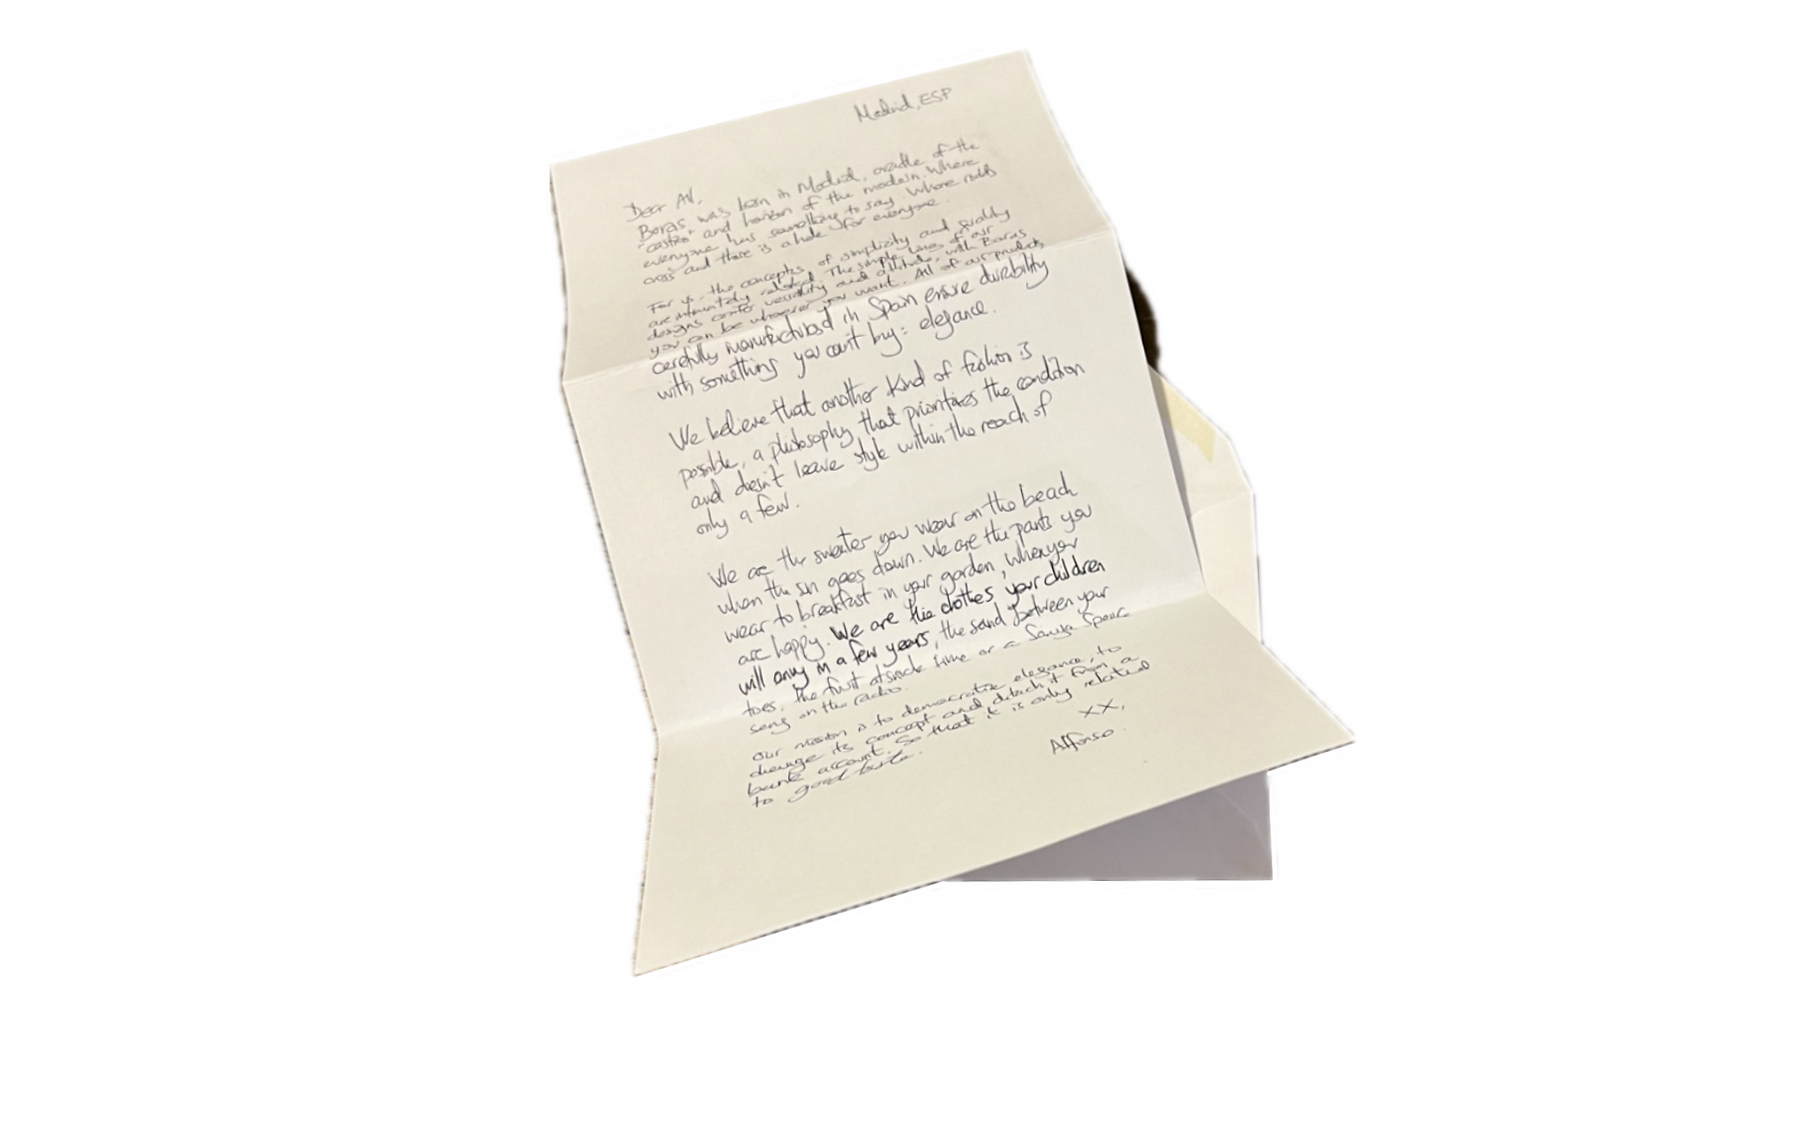 Madrid, ESP
Dear AV,
Boras was born in Madrid, cradle of the
"castizo" and horizon of the modern. Where
everyone has something to say. Where roads
cross and there is a hole for everyone.
For us, the concepts of simplicity and quality
are intimately related. The simple lines of our
designs confer versatility and attitude, with Boras
you can be whoever you want. All of our products,
carefully manufactured in Spain ensure durability
with something you can't buy: elegance.
We believe that another kind of fashion is
possible, a philosophy that prioritizes the condition
and doesn't leave style within the reach of
only a few.
We are the sweater you wear on the beach
when the sun goes down. We are the pants you
wear to breakfast in your garden, when you
are happy. We are the clothes your children
will envy in a few years, the sand between your
toes, the fruit at snack time or a Sanya Spoek
song on the radio.
our mission is to democratize elegance, to
change its concept and detach it from a
bank account. So that it is only related
to good taste.
XX,
Alfonso.